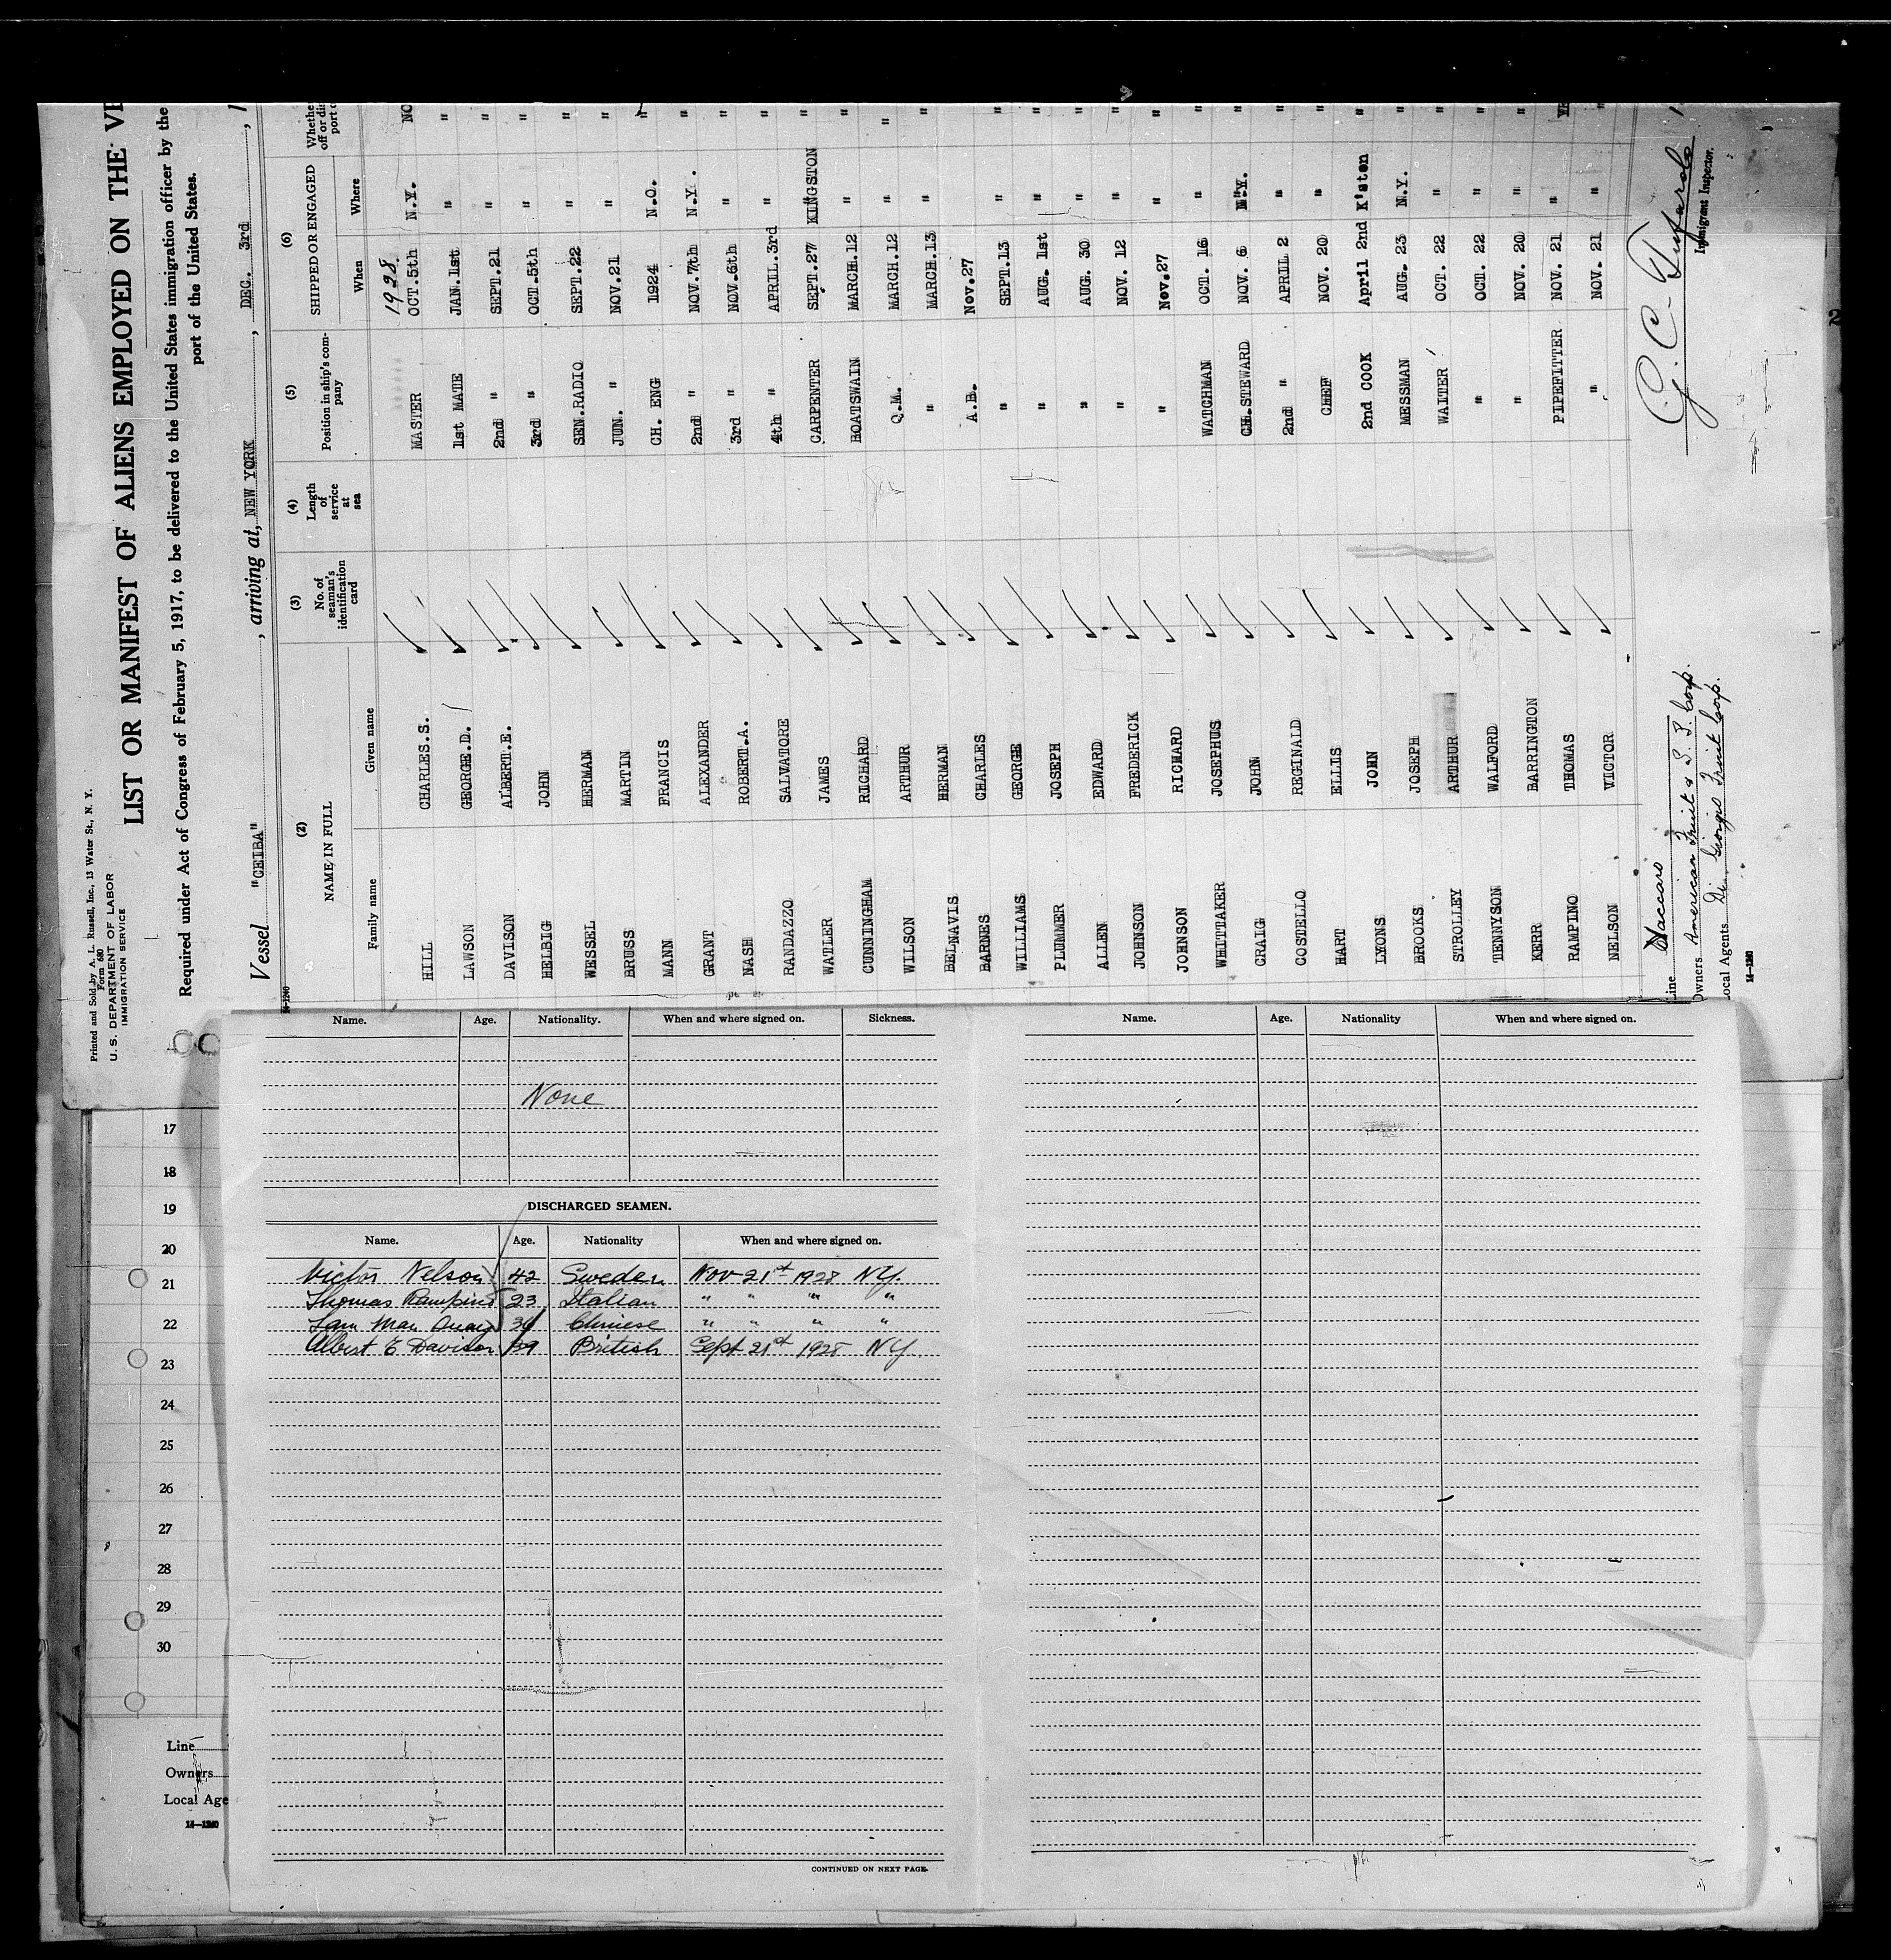 Printed and Sold by A. L. Russell, Inc., 13 Water St., N. Y.
Form 680
U. S. DEPARTMENT OF LABOR
IMMIGRATION SERVICE
LIST OR MANIFEST OF ALIENS EMPLOYED ON THE VE
Required under Act of Congress of February 5, 1917, to be delivered to the United States immigration officer by the
port of the United States.
Vessel "CEIBA", arriving at, NEW YORK, DEC. 3rd, 1
14-1240
(2) (3) (4) (5) (6)
NAME IN FULL No. of seaman's identification card Length of service at sea Position in ship's company SHIPPED OR ENGAGED Whethe off or dis port o
Family name Given name When Where
1928
HILL CHARLES.S. MASTER OCT.5th N.Y. NO
LAWSON GEORGE.D. 1st MATE JAN.1st " "
DAVISON ALBERT.E. 2nd " SEPT.21 " "
HELBIG JOHN 3rd " OCT.5th " "
WESSEL HERMAN SEN.RADIO SEPT.22 " "
BRUSS MARTIN JUN. " NOV.21 " "
MANN FRANCIS CH. ENG 1924 N.O. "
GRANT ALEXANDER 2nd " NOV.7th N.Y. "
NASH ROBERT.A. 3rd " NOV.6th " "
RANDAZZO SALVATORE 4th " APRIL.3rd " "
WATLER JAMES CARPENTER SEPT.27 KINGSTON "
CUNNINGHAM RICHARD BOATSWAIN MARCH.12 " "
WILSON ARTHUR Q.M. MARCH.12 " "
BELNAVIS HERMAN " MARCH.13 " "
BARNES CHARLES A.B. Nov.27
WILLIAMS GEORGE " SEPT.13 " "
PLUMMER JOSEPH " AUG. 1st " "
ALLEN EDWARD " AUG. 30 " "
JOHNSON FREDERICK " NOV. 12 " "
JOHNSON RICHARD " Nov.27 " "
WHITTAKER JOSEPHUS WATCHMAN OCT. 16 " "
CRAIG JOHN CH.STEWARD NOV. 6 N.Y. "
COSTELLO REGINALD 2nd " APRIL 2 " "
HART ELLIS CHEF NOV. 20 " "
LYONS JOHN 2nd COOK April 2nd K'sten "
BROOKS JOSEPH MESSMAN AUG. 23 N.Y. "
STROLLEY ARTHUR WAITER OCT. 22 " "
TENNYSON WALFORD " OCT. 22 " "
KERR BARRINGTON " NOV. 20 " "
RAMPINO THOMAS PIPEFITTER NOV. 21 " YE
NELSON VICTOR " NOV. 21 " "
Line Vaccaro
Owners American Fruit & S. S. Corp.
Local Agents Di Giorgio Fruit Corp.
14-1240
Immigrant Inspector.
2
Name. Age. Nationality. When and where signed on. Sickness.
None
DISCHARGED SEAMEN.
Name. Age. Nationality When and where signed on.
Victor Nelson 42 Sweden Nov 21st 1928 NY.
Thomas Rampino 23 Italian " " " "
Chinese " " " "
Albert E Davison 39 British Sept 21st 1928 NY
CONTINUED ON NEXT PAGE.
Name. Age. Nationality When and where signed on.
17
18
19
20
21
22
23
24
25
26
27
28
29
30
Line
Owners
Local Age
14-1240